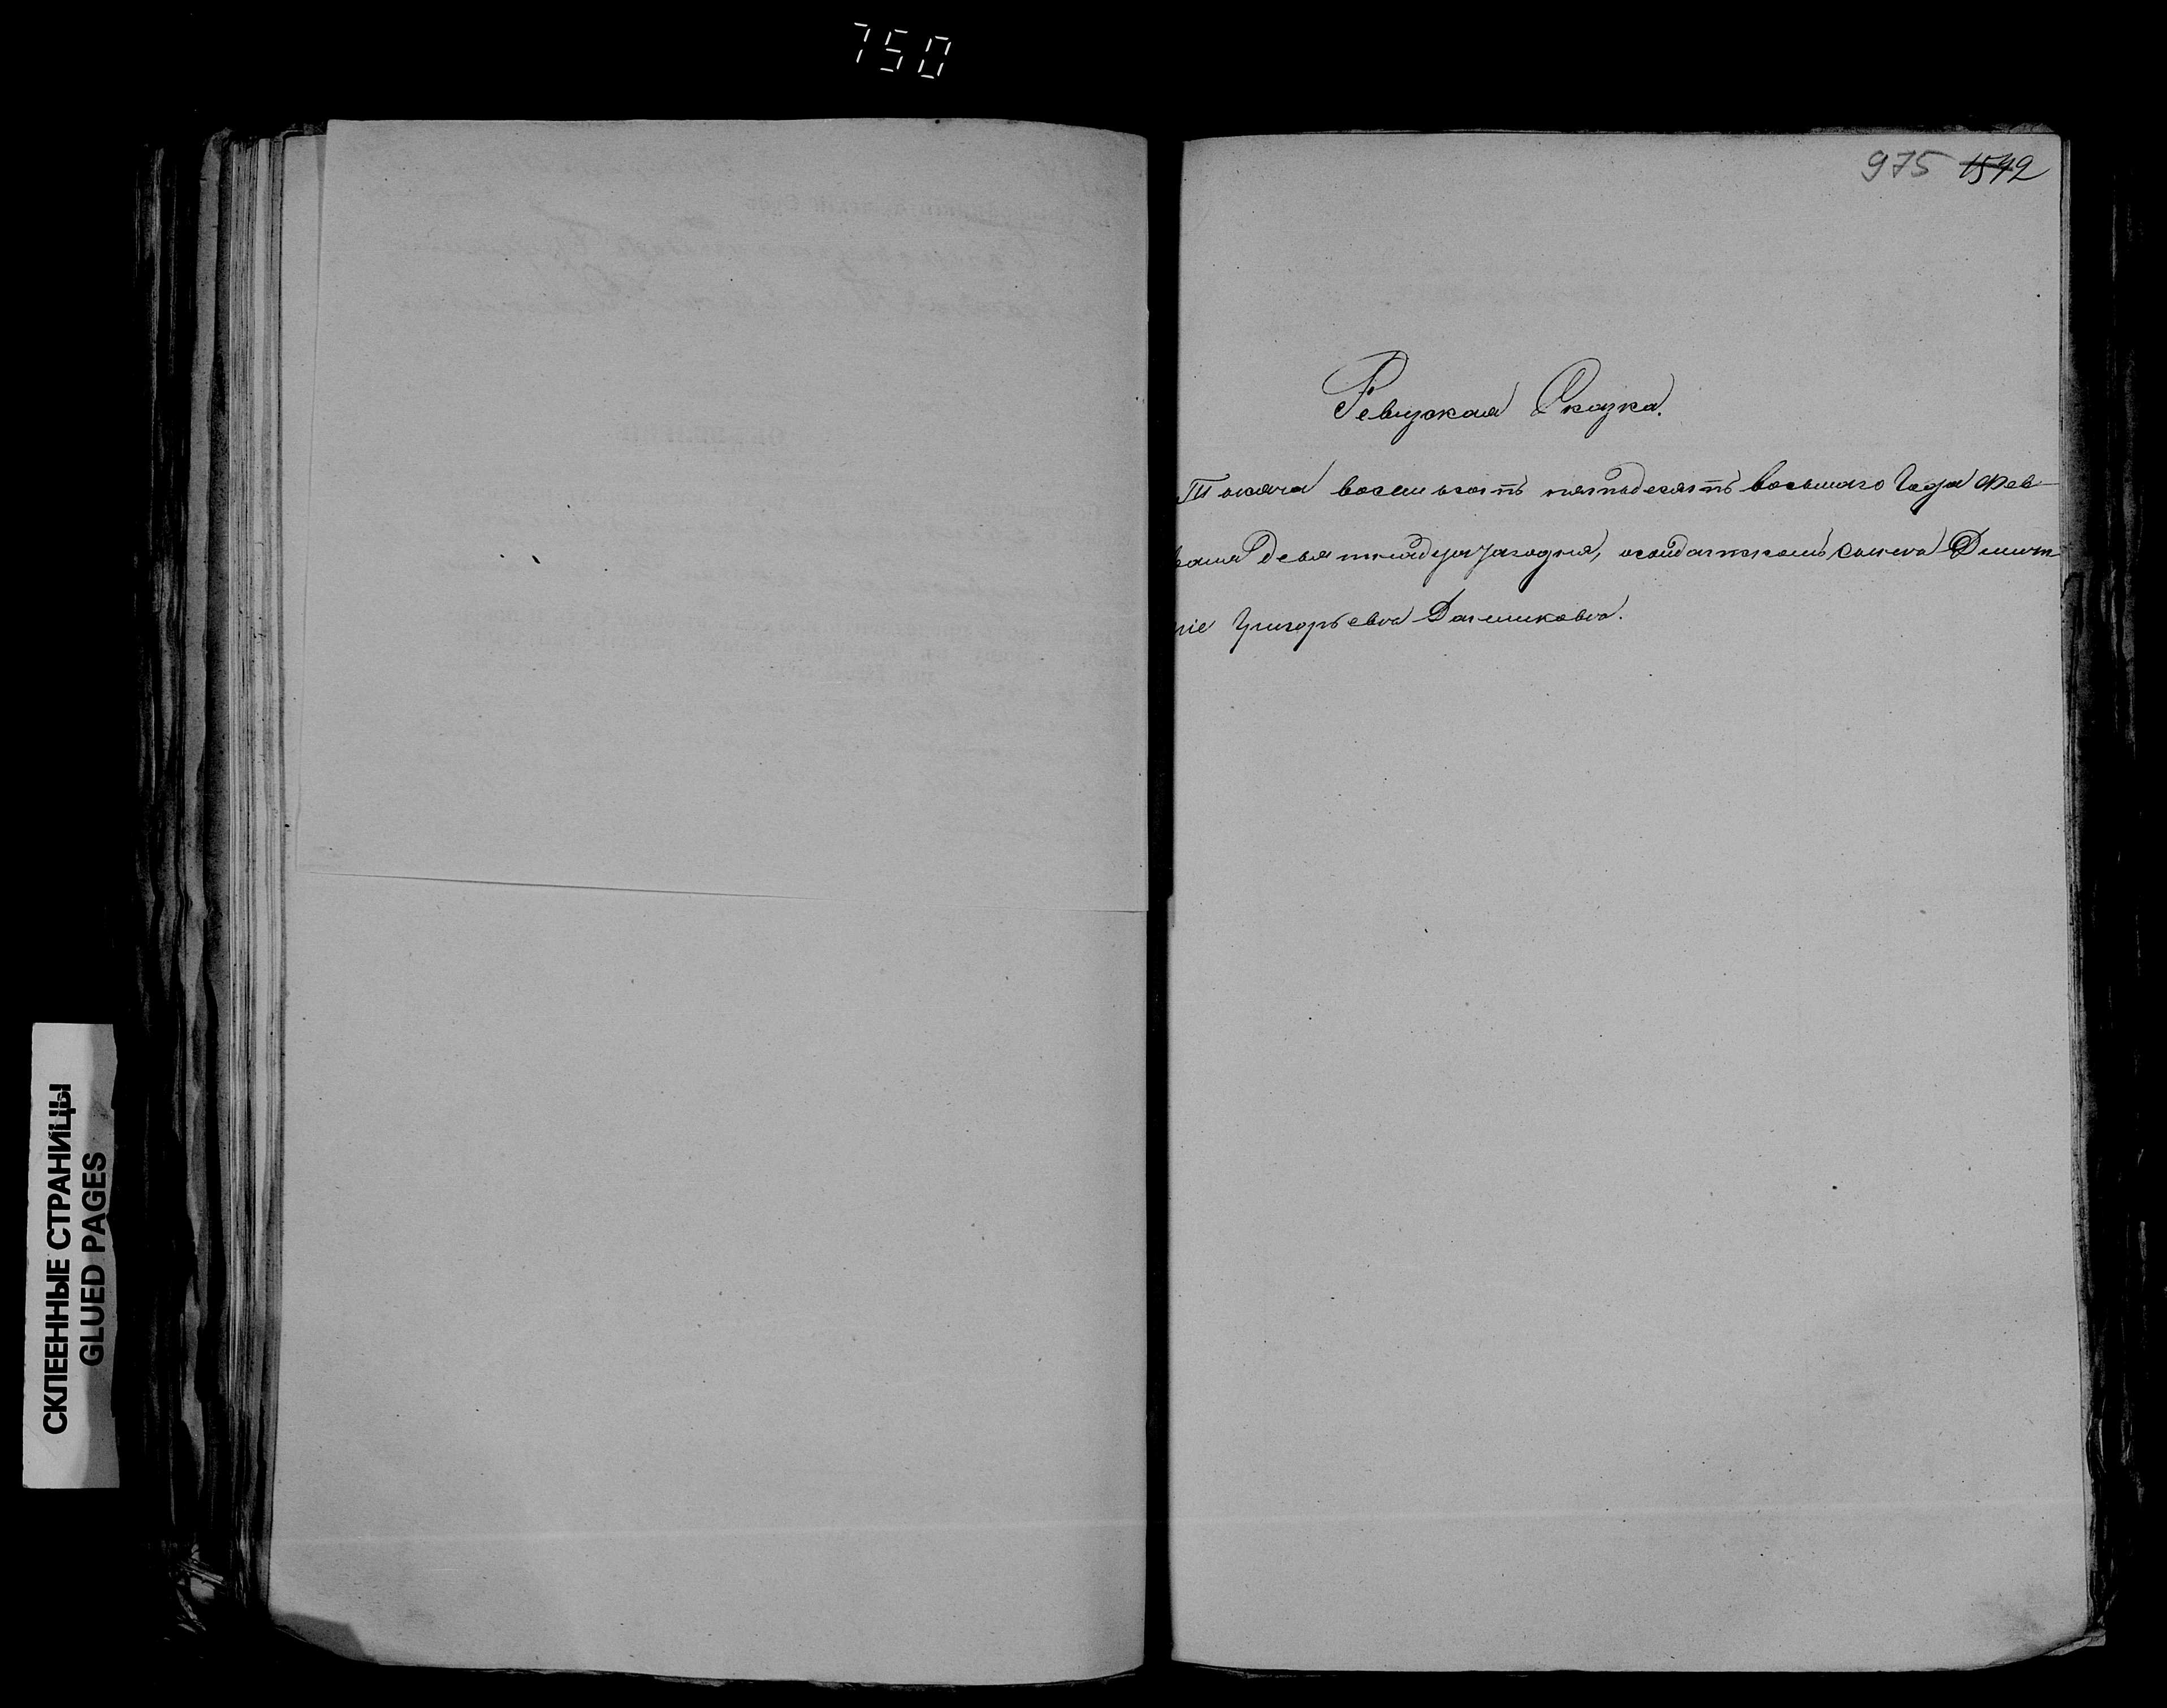 750
975 1542
Ревизская Сказка.
Тысяча восемьсотъ пятьдесятъ восьмаго Года Фев-
раля девятнадцатаго дня, солдатскомъ сынѣ Димит-
ріе Григорьевѣ
СКЛЕЕННЫЕ СТРАНИЦЫ
GLUED PAGES